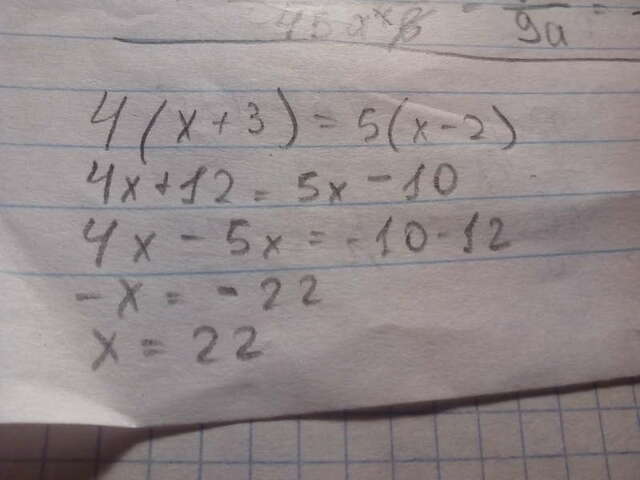 45 a^x b - / 9a =
4(x+3)=5(x-2)
4x+12=5x-10
4x-5x=-10-12
-x=-22
x=22